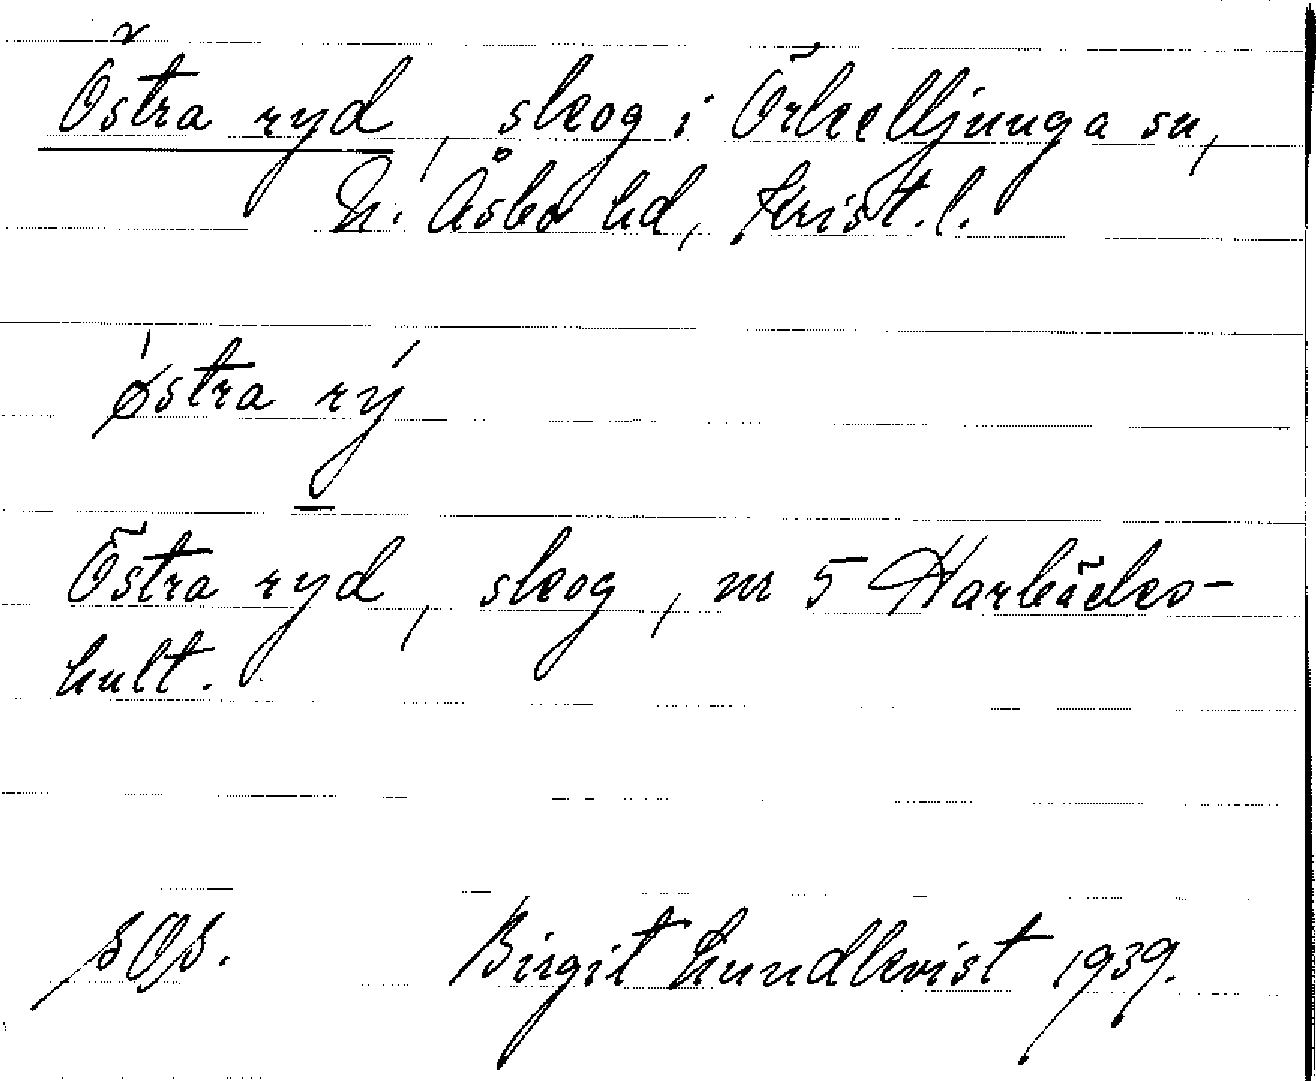 Östra ryd, skog i Örkelljunga sn,
N. Åsbo hd, Krist. l.
østra rý
Östra ryd, skog, nr 5 Harbäcks-
hult.
Birgit Lundkvist 1939.